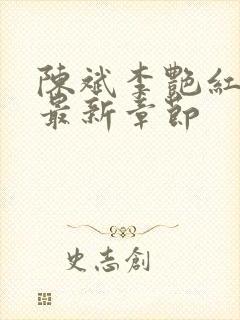 陳斌李艷紅
最新章節
史志創